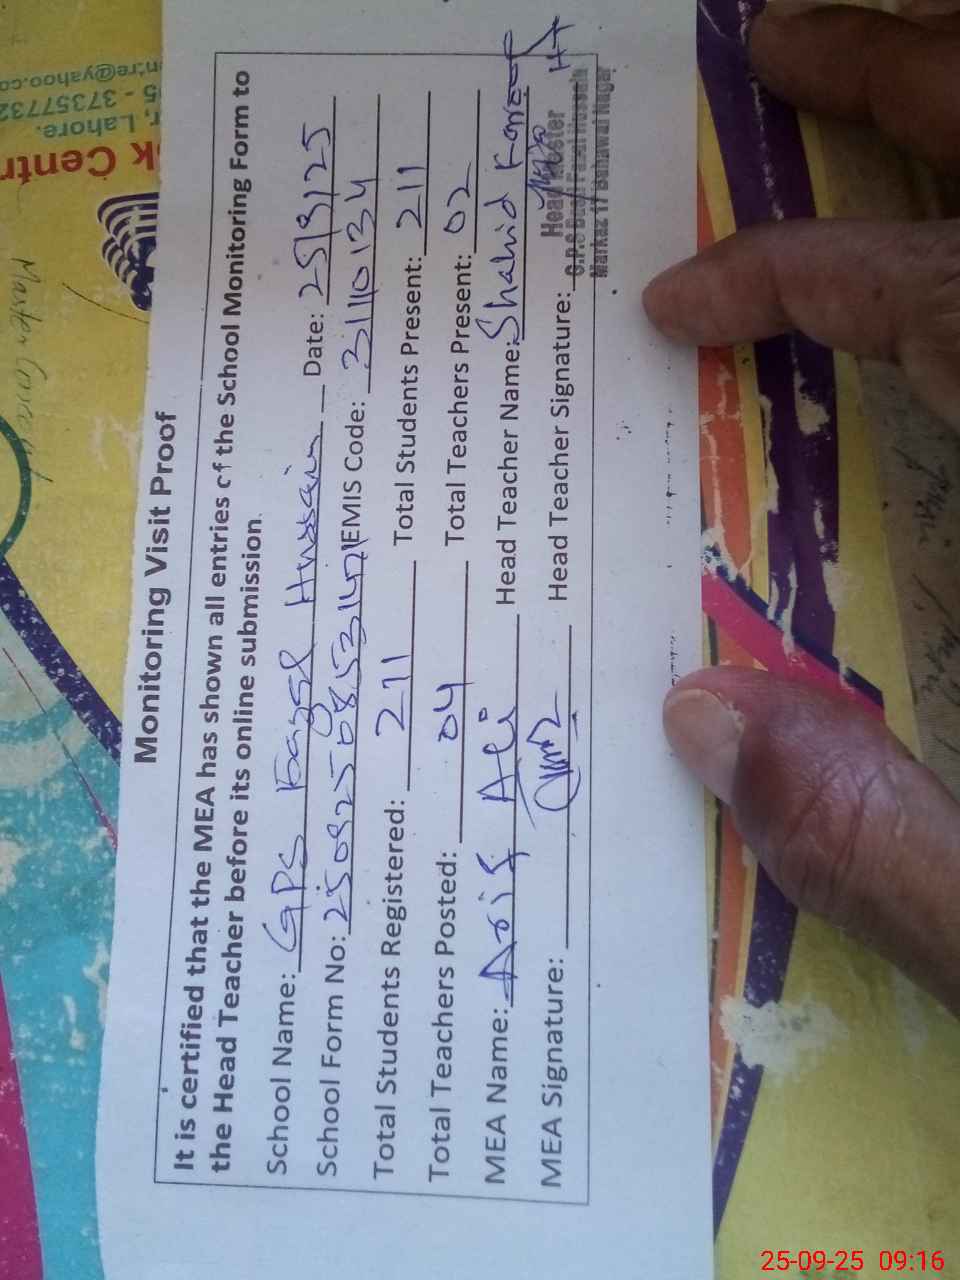 Monitoring Visit Proof
It is certified that the MEA has shown all entries of the School Monitoring Form to
the Head Teacher before its online submission.
School Name: GPS Fazal Hussain Date: 25/9/25
School Form No: EMIS Code: 31110134
Total Students Registered: 211 Total Students Present: 211
Total Teachers Posted: 04 Total Teachers Present: 02
MEA Name: Arif Ali Head Teacher Name: Shahid
MEA Signature: Head Teacher Signature:
HT
Head Master
G.P.S Fazal Hussain
Markaz 17 Bahawal Nagar
k Centr
, Lahore.
- 3735773
@yahoo.co
25-09-25 09:16